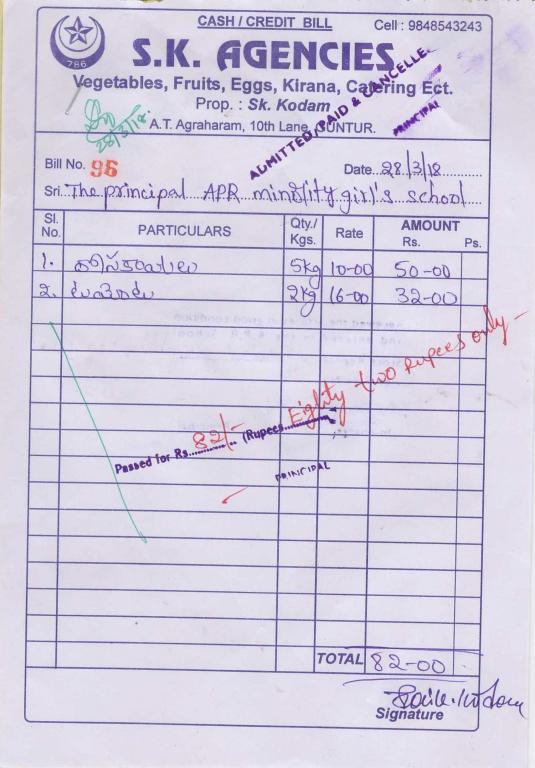 CASH / CREDIT BILL
Cell : 9848543243
786
S.K. AGENCIES
Vegetables, Fruits, Eggs, Kirana, Catering Ect.
Prop. : Sk. Kodam
A.T. Agraharam, 10th Lane, GUNTUR.
28/3/18
ADMITTED, PAID & CANCELLED
PRINCIPAL
Bill No. 96
Date..28/3/18
Sri..The principal APR minority girl's school
Sl. No. PARTICULARS Qty./ Kgs. Rate AMOUNT Rs. Ps.
1. 5kg 10-00 50-00
2. 2kg 16-00 32-00
Passed for Rs. 82/- (Rupees Eighty two Rupees only -
PRINCIPAL
TOTAL 82-00
Signature